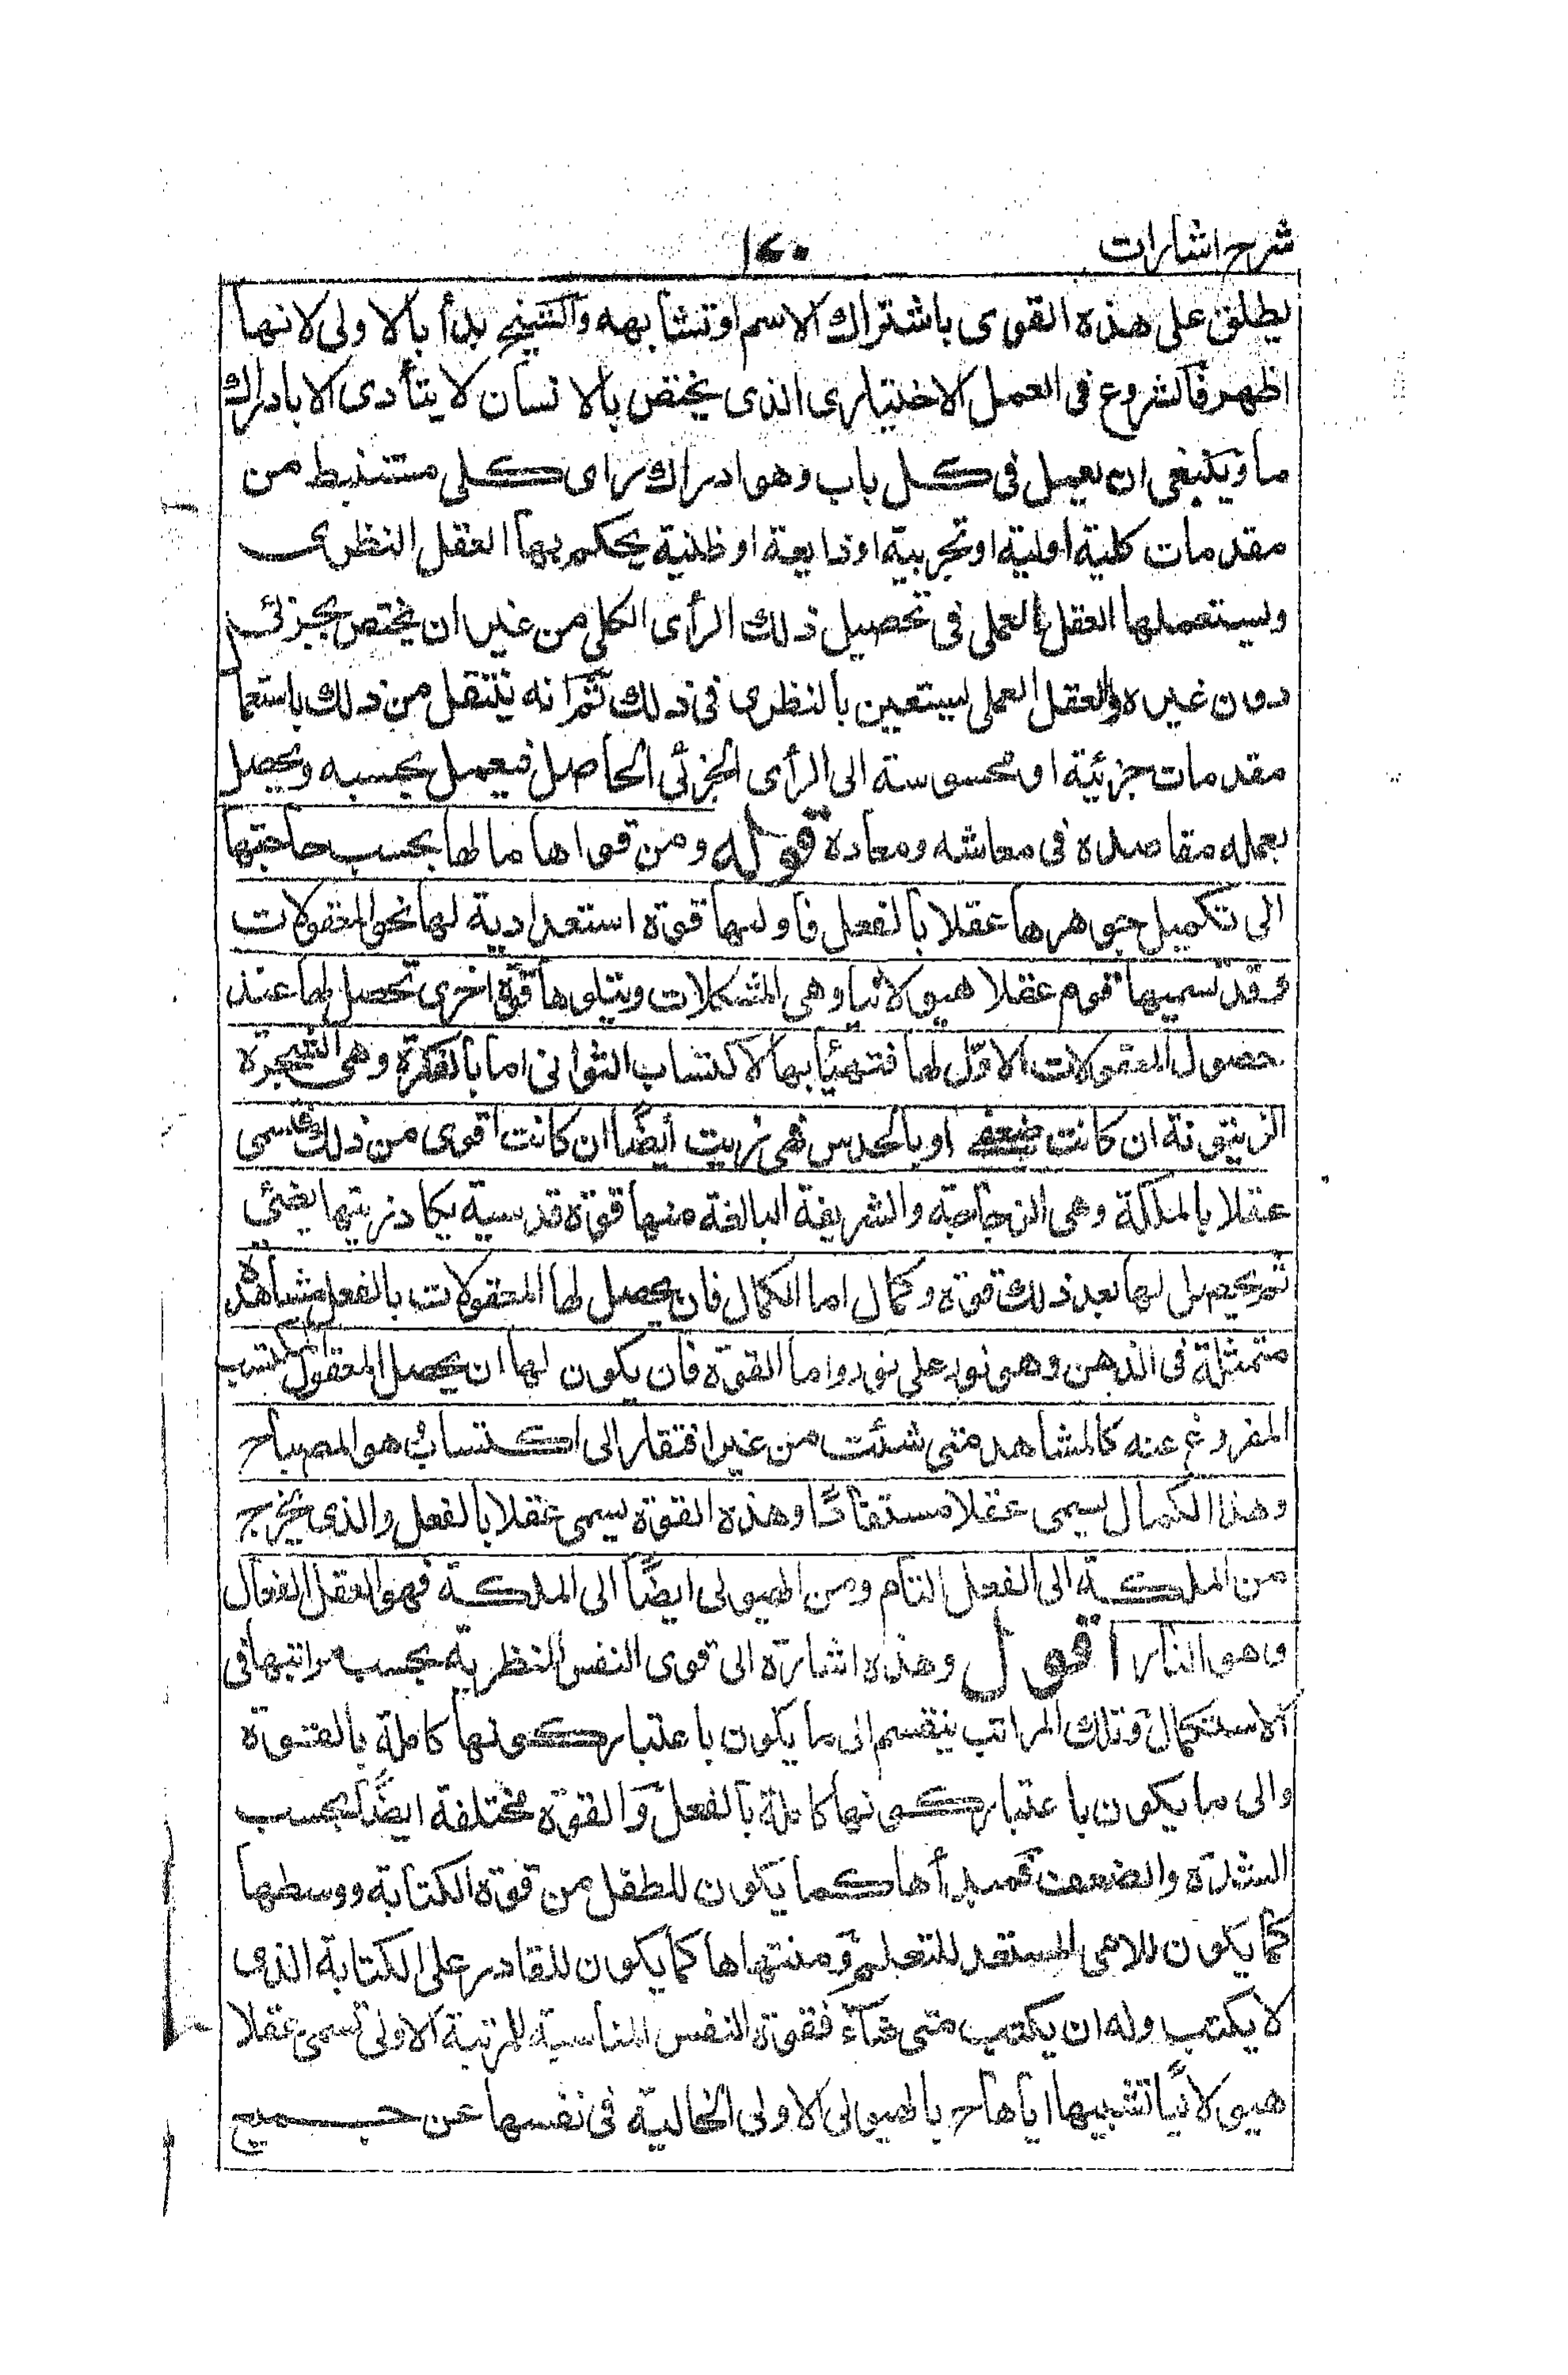 شرح اشارات ١٤٠
يطلق على هذه القوى باشتراك الاسم او تشابهه والشيخ بدأ بالاولى لانها
اظهر فالشروع فى العمل الاختيارى الذى يختص بالانسان لا يتأدى الا بادراك
ما وينبغى ان يعمل فى كل باب وهو ادراك راى كلى مستنبط من
مقدمات كلية اولية او تجربية او ذايعة او ظنية يحكم بها العقل النظرى
ويستعملها العقل العملى فى تحصيل ذلك الرأى الكلى من غير ان يختص بجزئى
دون غيره والعقل العملى يستعين بالنظرى فى ذلك ثم انه ينتقل من ذلك باستعما
مقدمات جزئية او محسوسة الى الرأى الجزئى الحاصل فيعمل بحسبه ويحصل
بعمله مقاصده فى معاشه ومعاده قوله ومن قواها ما لها بحسب حاجتها
الى تكميل جوهرها عقلا بالفعل فاوليها قوة استعدادية لها نحو المعقولات
وقد تسميها قوم عقلا هيولانيا وهى المشكلات ويتلوها قوة اخرى تحصل لها عند
حصول المعقولات الاول لها فتهيأ بها لاكتساب الثوانى اما بالفكرة وهى الشجرة
الزيتونة ان كانت ضعفى او بالحدس فهى زيت أيضًا ان كانت اقوى من ذلك فتسمى
عقلا بالملكة وهى الزجاجة والشريفة البالغة منها قوة قدسية يكاد زيتها يضئى
ثم يحصل لها بعد ذلك قوة وكمال اما الكمال فان يحصل لها المعقولات بالفعل مشاهدة
متمثلة فى الذهن وهو نور على نور واما القوة فان يكون لها ان يحصل المعقول المكتسب
المفروغ عنه كالمشاهد متى شئت من غير افتقار الى اكتساب هو المصباح
وهذا الكمال يسمى عقلا مستفادًا وهذه القوة يسمى عقلا بالفعل والذى يخرج
من الملكة الى الفعل التام ومن الهيولى ايضًا الى الملكة فهو العقل الفعال
وهو النار اقول وهذه اشارة الى قوى النفس النظرية بحسب مراتبها فى
الاستكمال وتلك المراتب ينقسم الى ما يكون باعتبار كونها كاملة بالقوة
والى ما يكون باعتبار كونها كاملة بالفعل والقوة مختلفة ايضًا بحسب
الشدة والضعف فمبدأها كما يكون للطفل من قوة الكتابة ووسطها
كما يكون للامى المستعد للتعلم ومنتهاها كما يكون للقادر على الكتابة الذى
لا يكتب وله ان يكتب متى شآء فقوة النفس المناسبة للمرتبة الاولى تسمى عقلا
هيولانيًا تشبيها اياها ح بالهيولى الاولى الخالية فى نفسها عن جميع